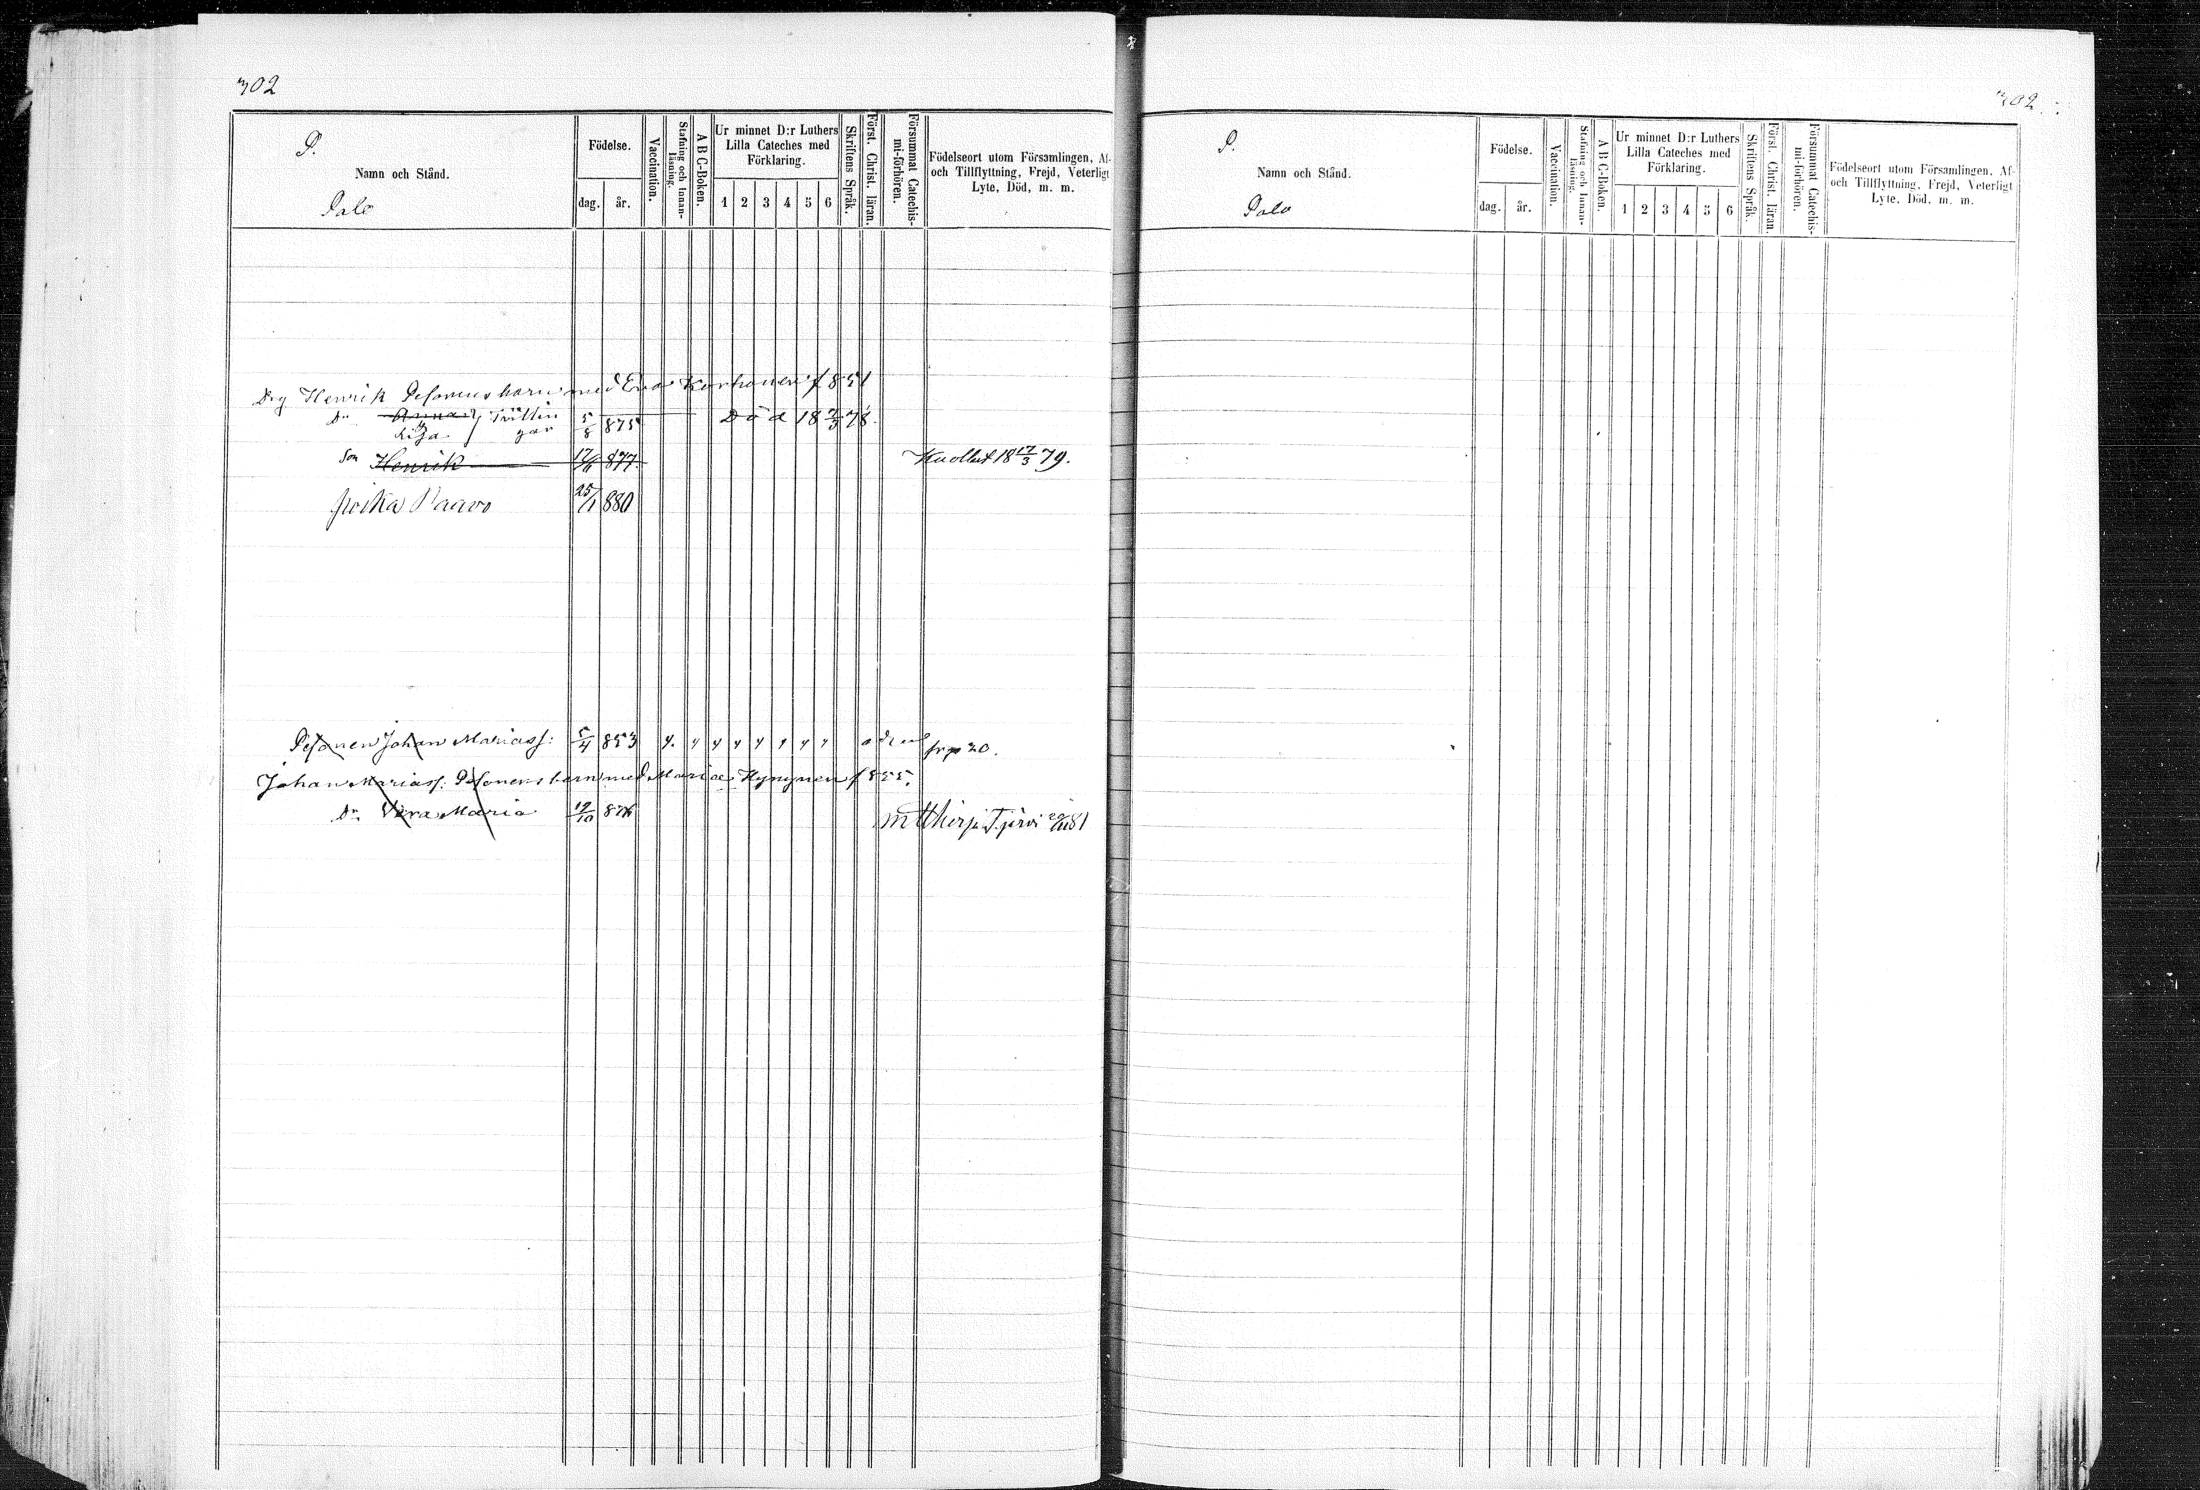 302
P.
Namn och Stånd.
Palo
Födelse.
dag. år.
Vaccination.
Stafning och Innan-
läsning.
A B C-Boken.
Ur minnet D:r Luthers
Lilla Cateches med
Förklaring.
1 2 3 4 5 6
Skriftens Språk.
Först. Christ. läran.
Försummat Catechis-
mi-förhören.
Födelseort utom Församlingen, Af-
och Tillflyttning, Frejd, Veterligt
Lyte, Död, m. m.
Drg Henrik Pesonens barn med Eva Korhonen f 851
Dr Anna } Tvillin
Lisa } gar 5/8 875 Död 18 2/3 78.
Son Henrik 17/11 877. Kuollut 18 17/3 79.
poika Paavo 25/1 880
Pesonen Johan Mariass: 5/4 853
Johan Mariass: Pesonens barn med Maria Hynynen f 855.
Dr. Vera Maria 12/10 876
302
P.
Namn och Stånd.
Palo
Födelse.
dag. år.
Vaccination.
Stafning och Innan-
läsning.
A B C-Boken.
Ur minnet D:r Luthers
Lilla Cateches med
Förklaring.
1 2 3 4 5 6
Skriftens Språk.
Först. Christ. läran.
Försummat Catechis-
mi-förhören.
Födelseort utom Församlingen, Af-
och Tillflyttning, Frejd, Veterligt
Lyte, Död, m. m.